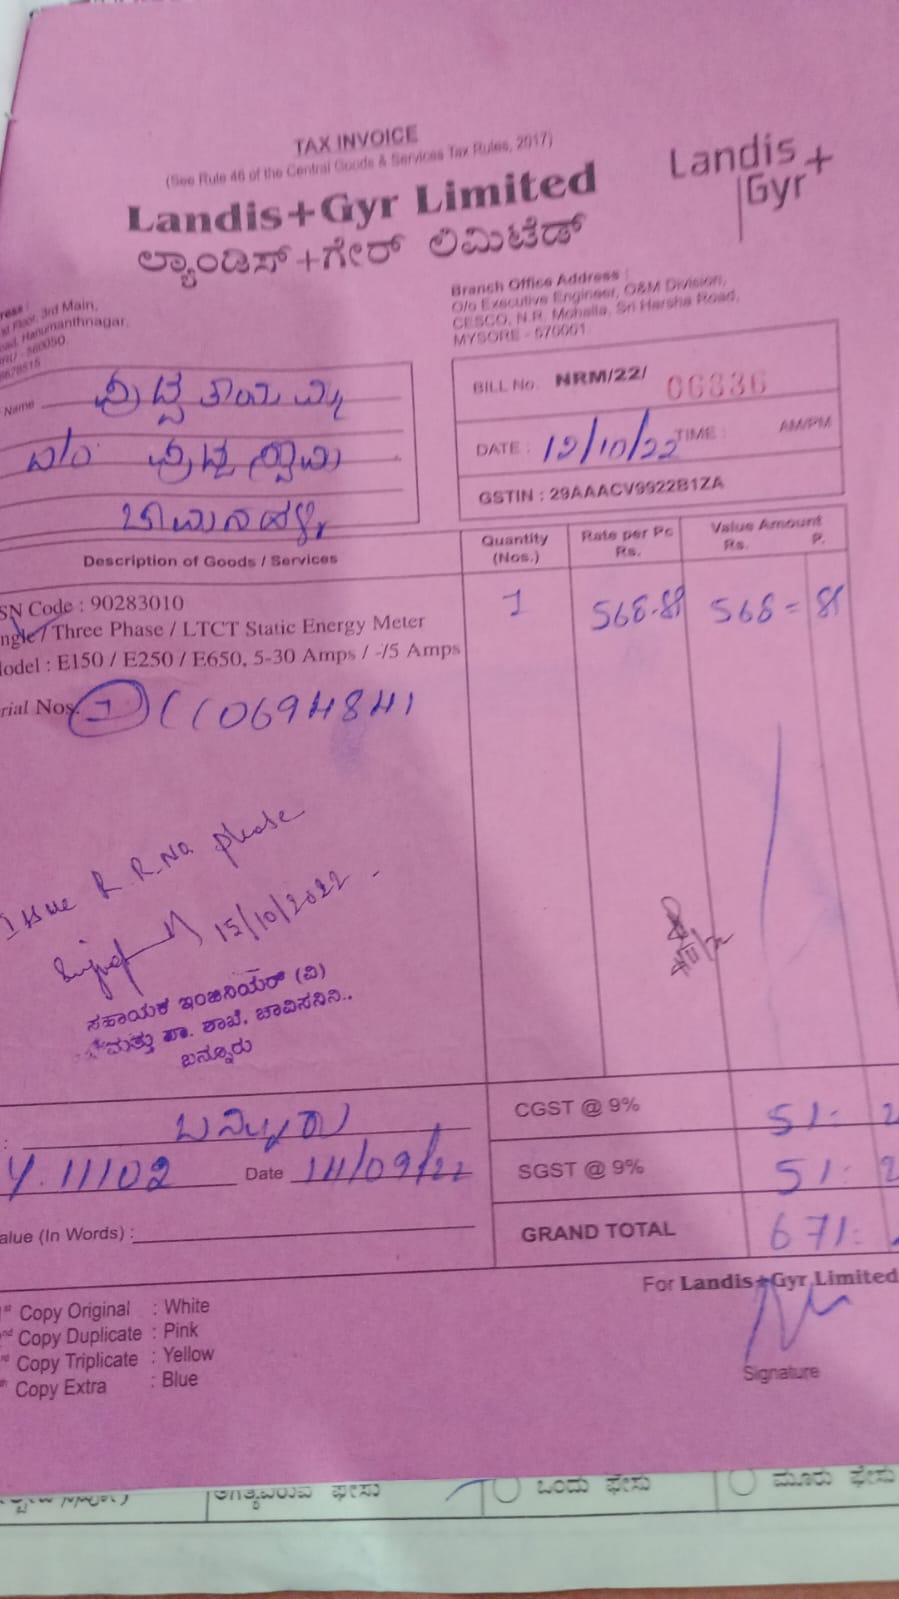 TAX INVOICE
(See Rule 46 of the Central Goods & Services Tax Rules, 2017)
Landis+Gyr Limited
ಲ್ಯಾಂಡಿಸ್+ಗೇರ್ ಲಿಮಿಟೆಡ್
Landis+
Gyr
Floor, 3rd Main,
Hanumanthnagar,
560050
Branch Office Address :
O/o Executive Engineer, O&M Division,
CESCO, N.R. Mohalla, Sri Harsha Road,
MYSORE - 570001
Name
BILL No. NRM/22/ 06336
DATE : 12/10/22 TIME : AM/PM
GSTIN : 29AAACV9922B1ZA
Description of Goods / Services
Quantity
(Nos.)
Rate per Pc
Rs.
Value Amount
Rs. P.
SN Code : 90283010
ngle / Three Phase / LTCT Static Energy Meter
lodel : E150 / E250 / E650, 5-30 Amps / -/5 Amps
1 568.89 568 =
rial Nos.
Issue R.R.No please
15/10/2022
ಸಹಾಯಕ ಇಂಜಿನಿಯರ್ (ವಿ)
ಮತ್ತು ಪಾ. ಶಾಖೆ, ಚಾವಿಸನಿನಿ.,
ಬನ್ನೂರು
ಬನ್ನೂರು
11102 Date 14/09/22
alue (In Words) :
CGST @ 9% 51
SGST @ 9% 51
GRAND TOTAL 671
For Landis+Gyr Limited
Signature
st Copy Original : White
nd Copy Duplicate : Pink
Copy Triplicate : Yellow
Copy Extra : Blue
ಫೇಸು
ಒಂದು ಫೇಸು
ಮೂರು ಫೇಸು